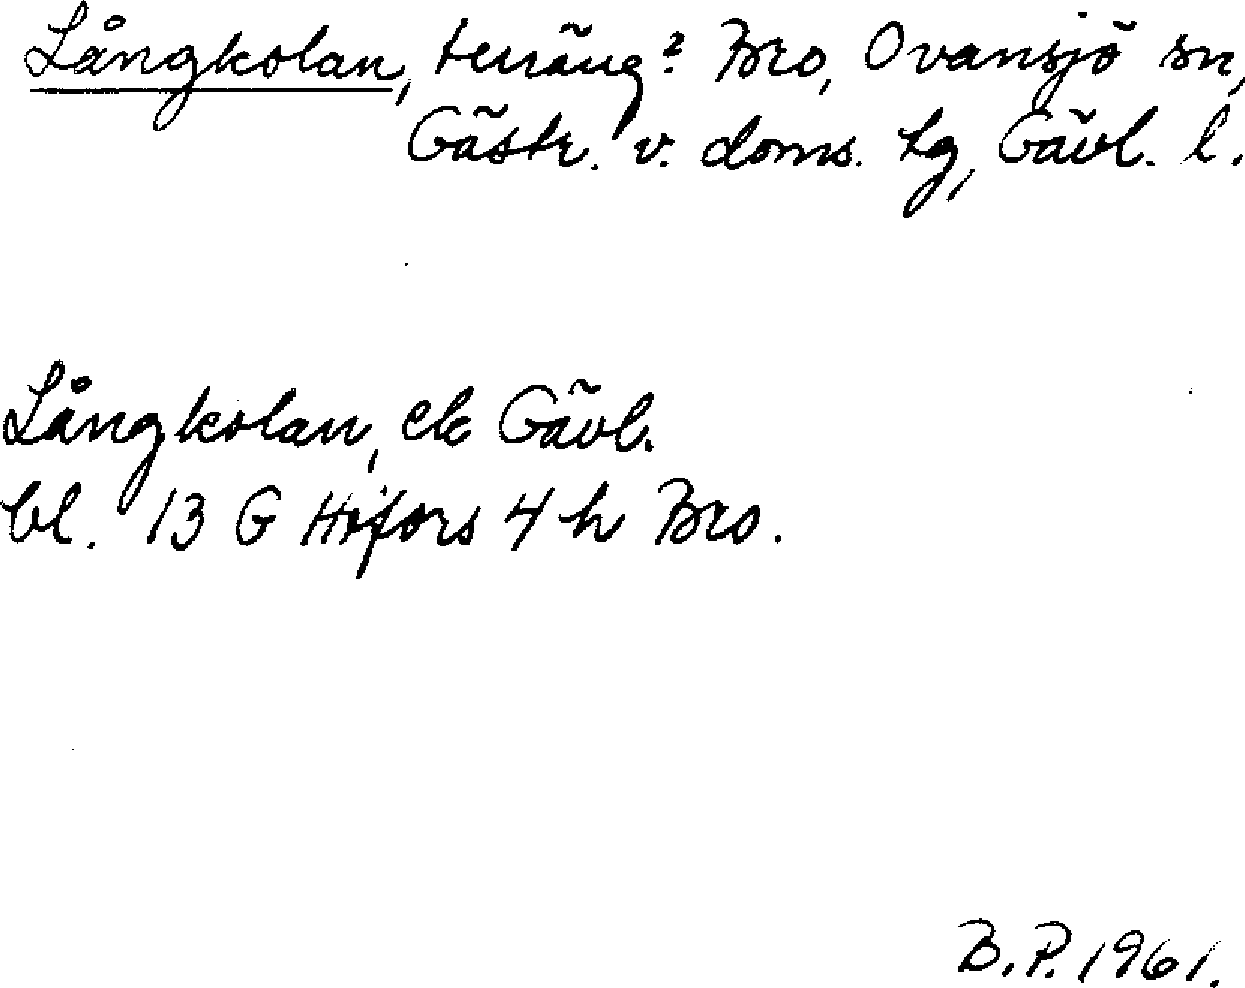 Långkolan, terräng? Bro, Ovansjö sn,
Gästr. v. doms. tg, Gävl. l.
Långkolan, ek Gävl.
bl. 13 G Hofors 4 h Bro.
B.P. 1961.